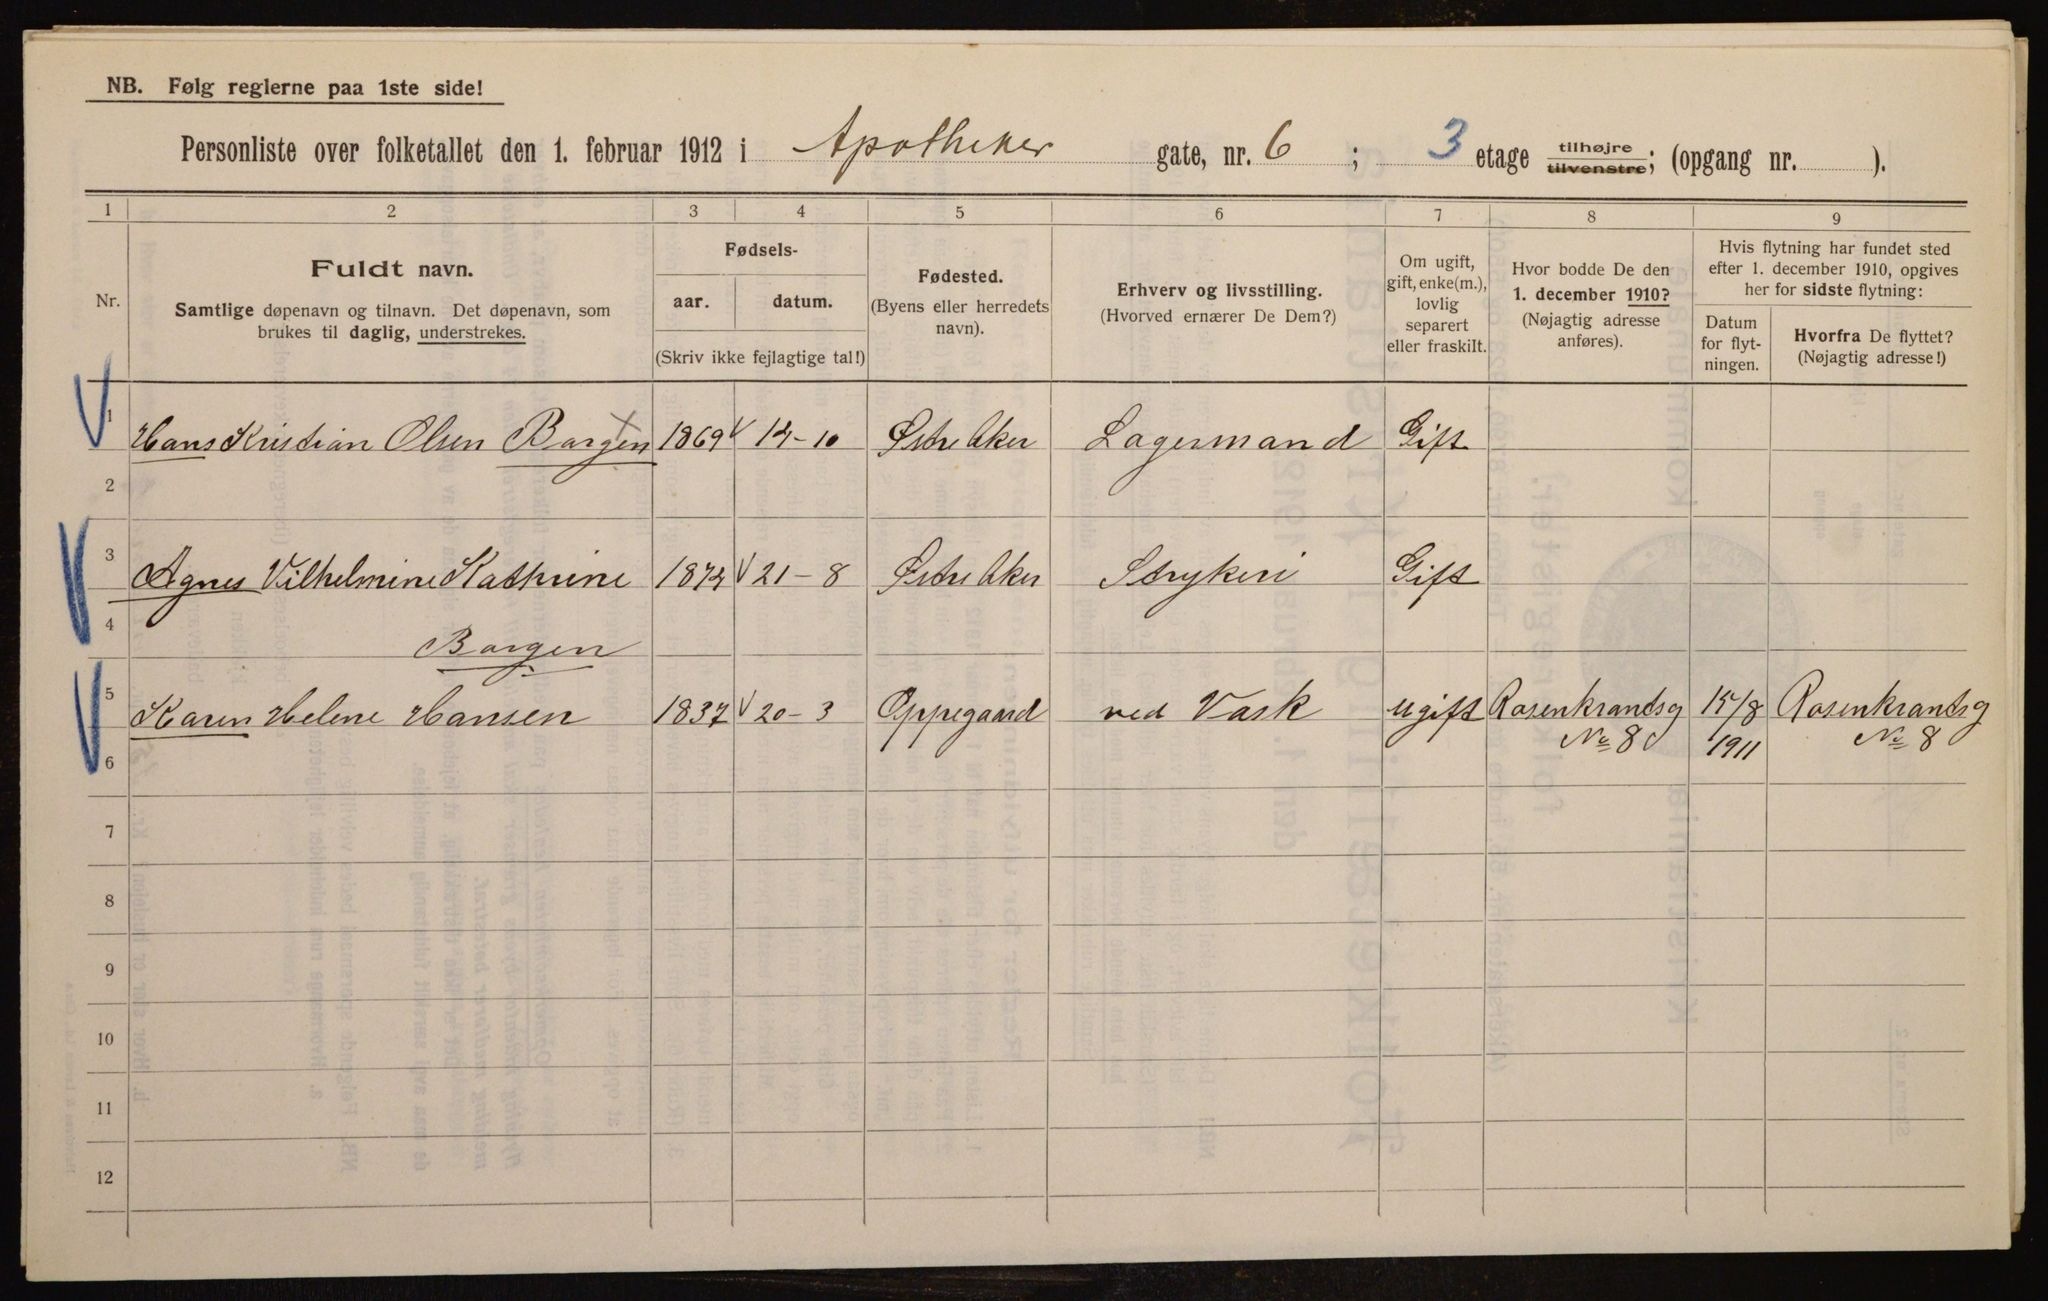 NB. Følg reglerne paa 1ste side!
Personliste over folketallet den 1. februar 1912 i Apotheker gate, nr. 6 ; 3 etage tilhøjre tilvenstre; (opgang nr. ).
1 2 3 4 5 6 7 8 9
Nr.
Fuldt navn.
Samtlige døpenavn og tilnavn. Det døpenavn, som
brukes til daglig, understrekes.
Fødsels-
aar. datum.
(Skriv ikke fejlagtige tal!)
Fødested.
(Byens eller herredets
navn).
Erhverv og livsstilling.
(Hvorved ernærer De Dem?)
Om ugift,
gift, enke(m.),
lovlig
separert
eller fraskilt.
Hvor bodde De den
1. december 1910?
(Nøjagtig adresse
anføres).
Hvis flytning har fundet sted
efter 1. december 1910, opgives
her for sidste flytning:
Datum
for flyt-
ningen.
Hvorfra De flyttet?
(Nøjagtig adresse!)
1 Hans Kristian Olsen Borgen 1869 14-10 Østre Aker Lagermand Gift
2
3 Agnes Vilhelmine Kathrine 1874 21-8 Østre Aker Strykeri Gift
4 Borgen
5 Karen Helene Hansen 1837 20-3 Oppegaard ved Vask ugift Rosenkrantsg 15/8 Rosenkrantsg
6 No 8 1911 No 8
7
8
9
10
11
12